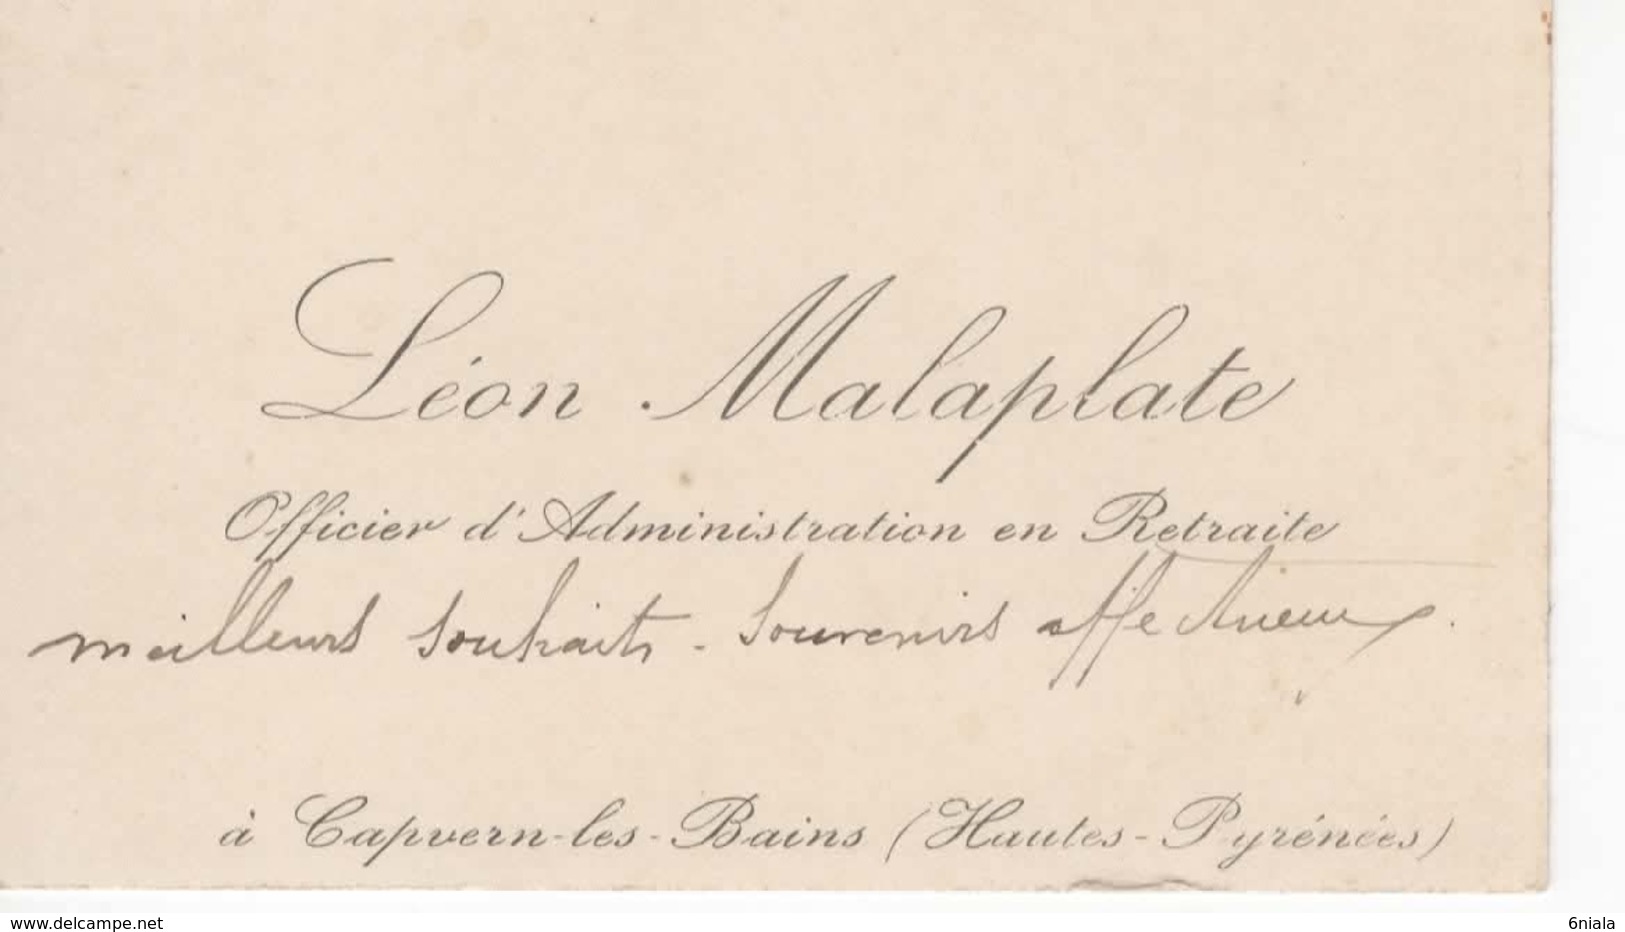 Léon Malaplate
Officier d'Administration en Retraite
meilleurs souhaits - Souvenirs affectueux.
à Capvern-les-Bains (Hautes-Pyrénées)
www.delcampe.net
6niala